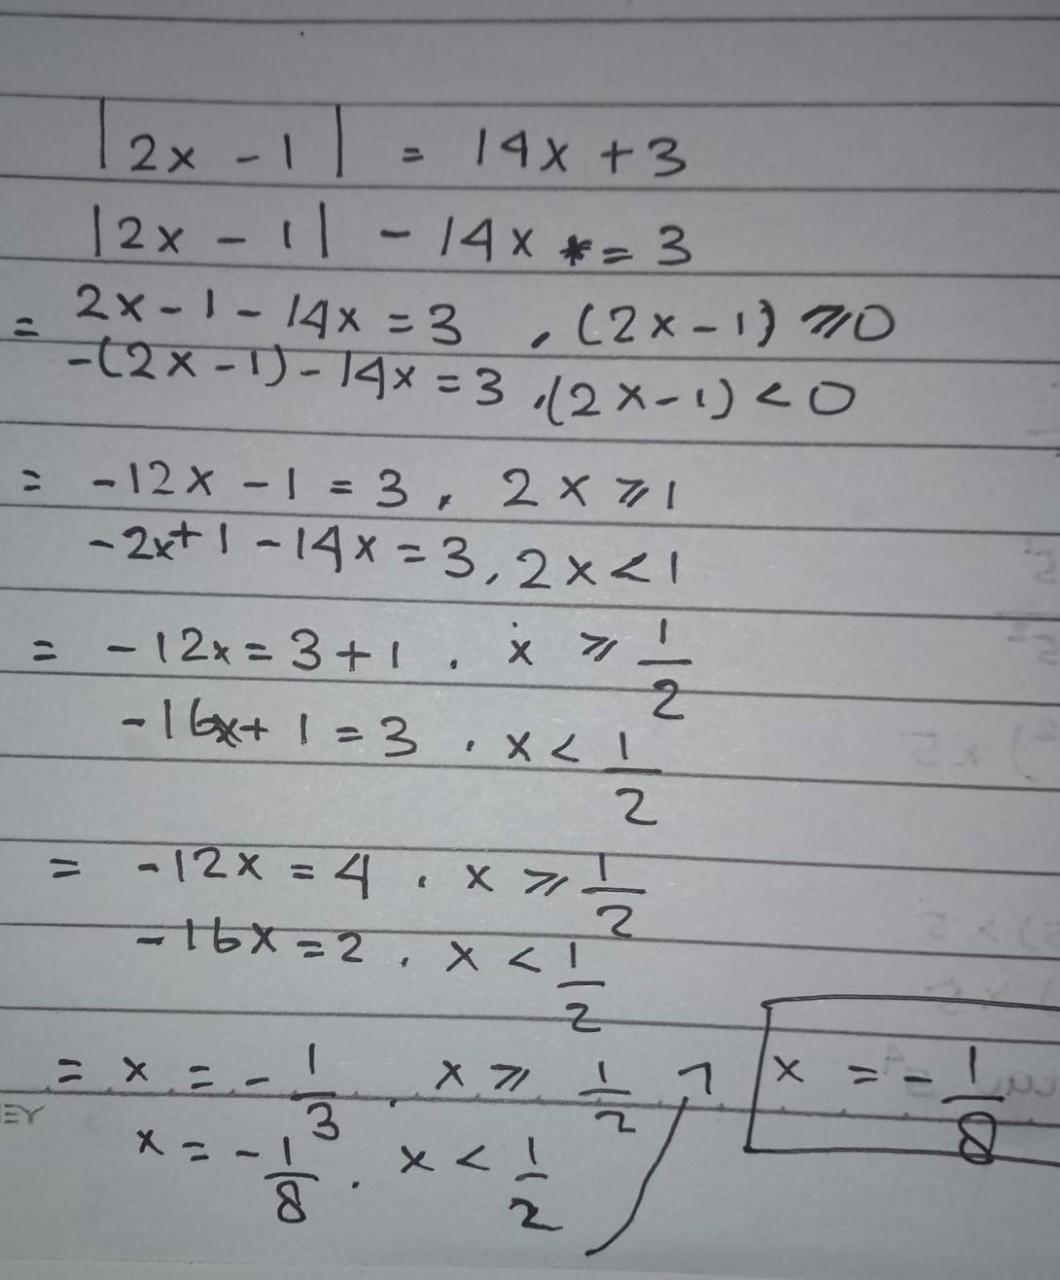 |2x - 1| = 14x + 3
|2x - 1| - 14x = 3
= 2x - 1 - 14x = 3 , (2x - 1) ⩾ 0
-(2x - 1) - 14x = 3 , (2x - 1) < 0
= -12x - 1 = 3 , 2x ⩾ 1
-2x + 1 - 14x = 3, 2x < 1
= -12x = 3 + 1 . x ⩾ 1/2
-16x + 1 = 3 . x < 1/2
= -12x = 4 . x ⩾ 1/2
-16x = 2 . x < 1/2
= x = -1/3 . x ⩾ 1/2
x = -1/8 . x < 1/2
x = -1/8
EY